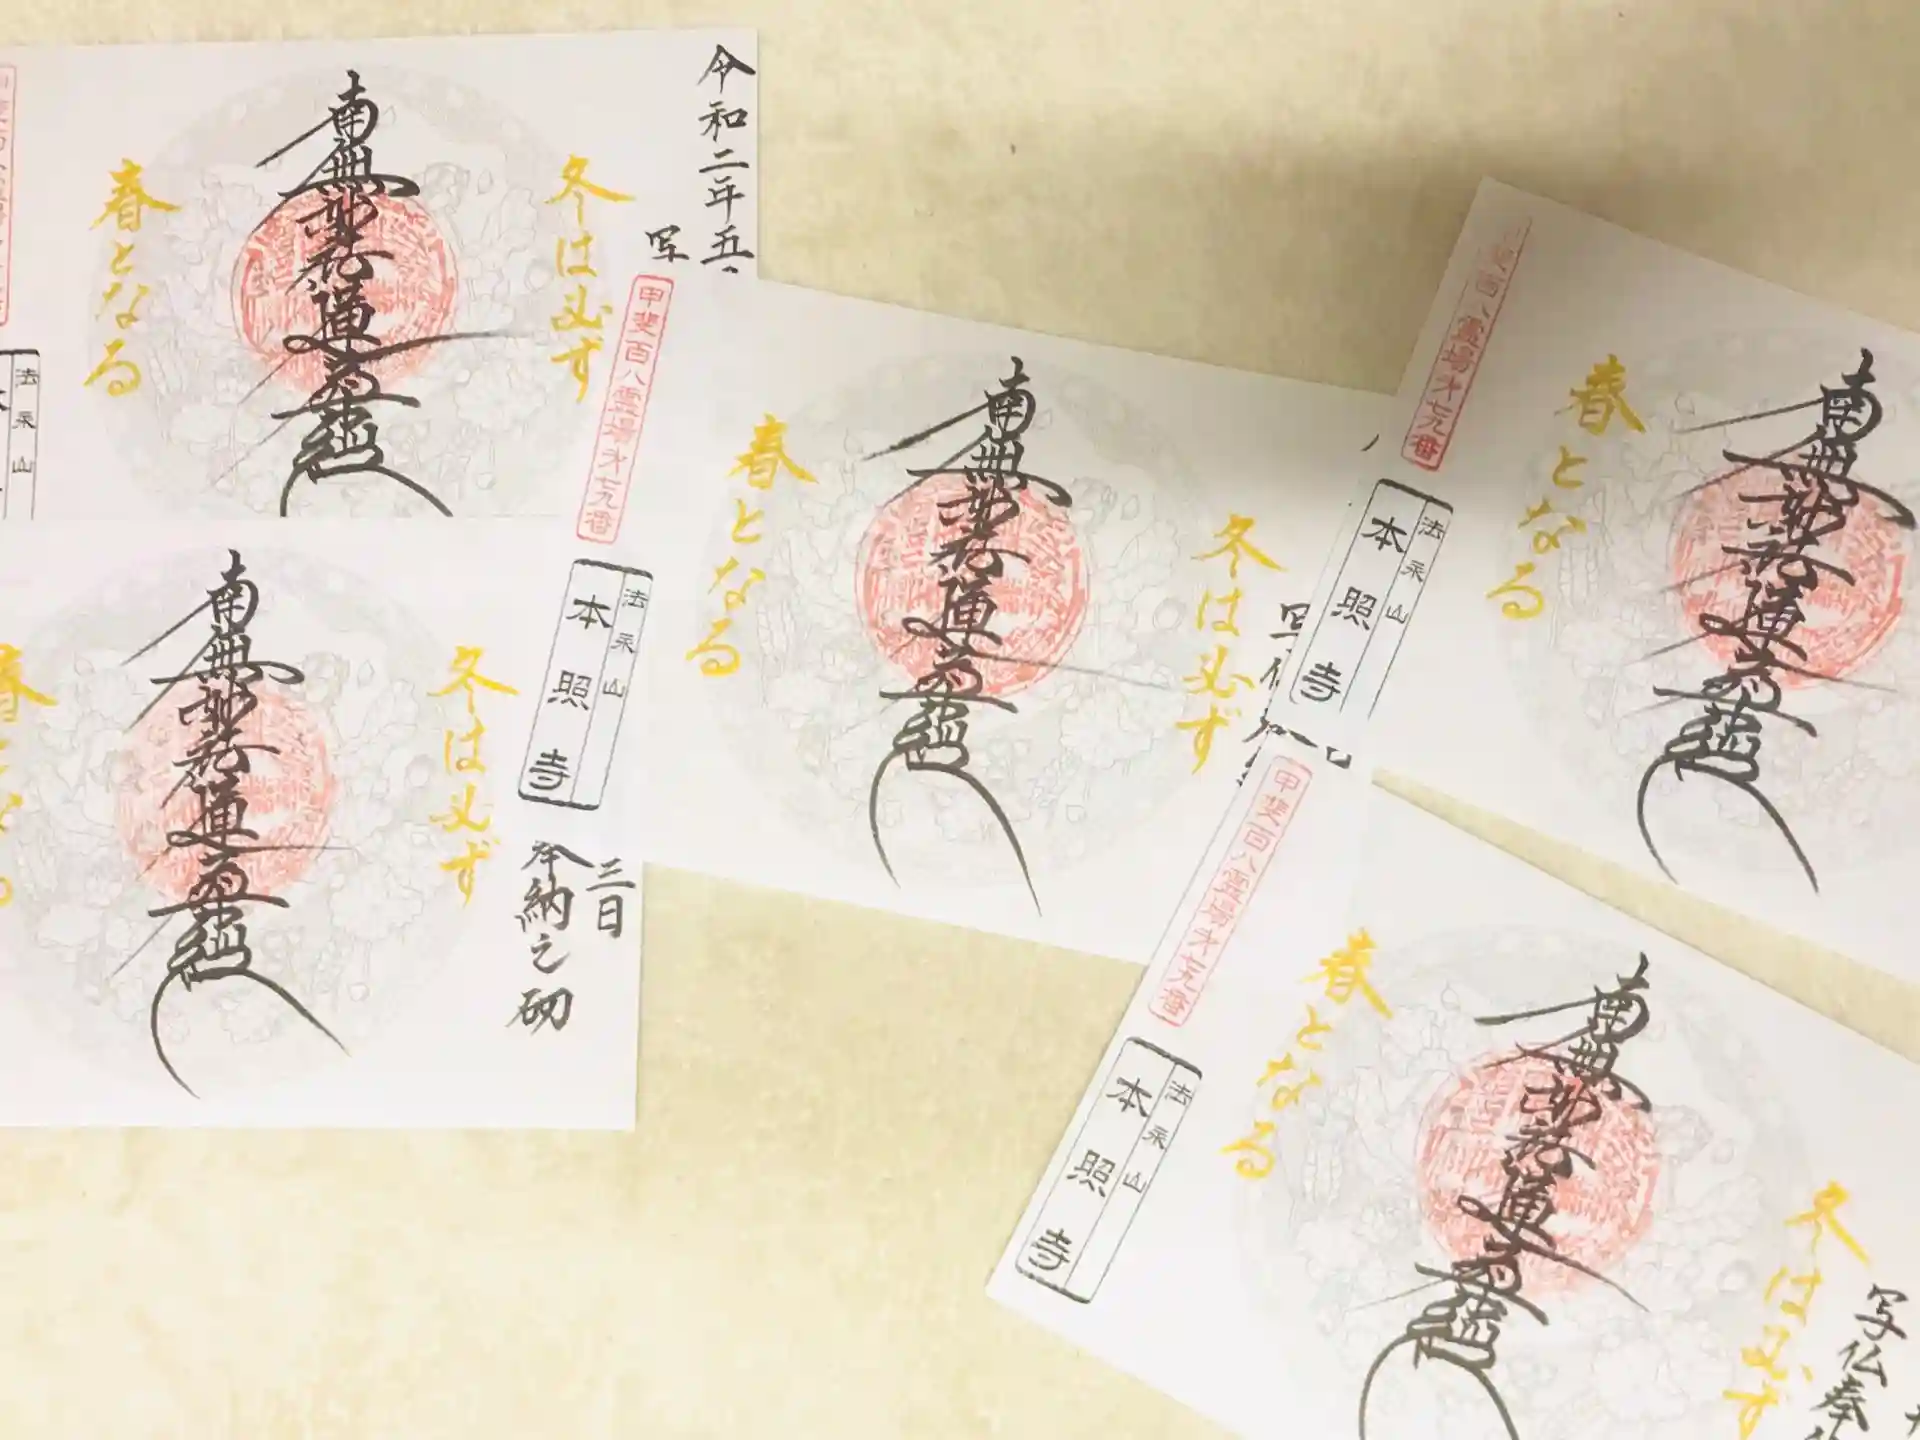 令和二年五
写
冬は必ず
南無妙法蓮華経
春となる
法永山
冬は必ず
南無妙法蓮華経
三日
奉納之砌
甲斐百八霊場第七九番
法永山
本照寺
冬は必ず
南無妙法蓮華経
春となる
百八霊場第七九番
法永山
本照寺
南無妙法蓮華経
春となる
甲斐百八霊場第七九番
法永山
本照寺
写仏奉
冬は必ず
南無妙法蓮華経
春となる